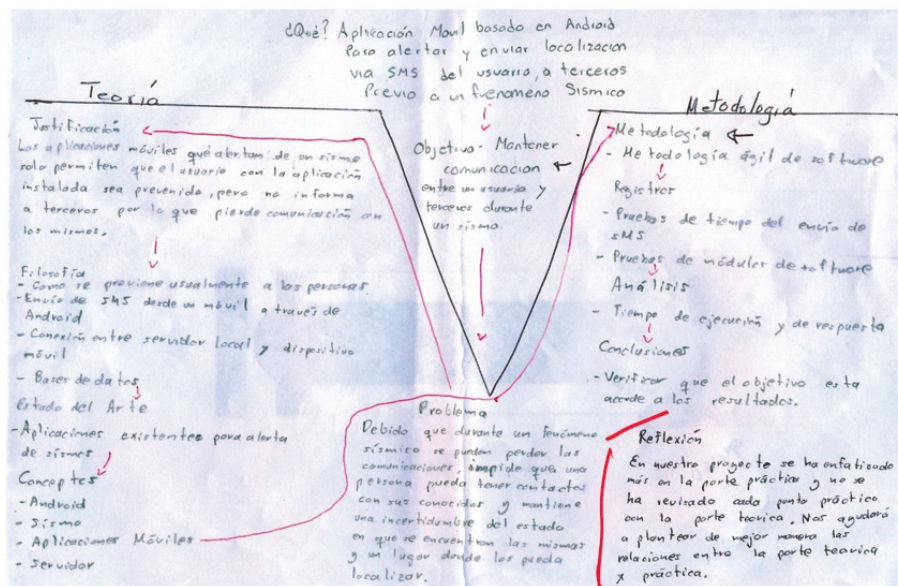 ¿Qué? Aplicación Movil basado en Android
Para alertar y enviar localización
via SMS del usuario, a terceros
Previo a un fenómeno Sísmico
Teoría
Justificación
Las aplicaciones móviles que alertan de un sismo
solo permiten que el usuario con la aplicación
instalada sea prevenido, pero no informa
a terceros por lo que pierde comunicación con
los mismos.
Filosofía
- Como se previene usualmente a las personas
- Envío de SMS desde un móvil a través de
Android
- Conexión entre servidor local y dispositivo
móvil
- Bases de datos
Estado del Arte
- Aplicaciones existentes para alerta
de sismos
Conceptos
- Android
- Sismo
- Aplicaciones Móviles
- Servidor
Objetivo - Mantener
comunicación
entre un usuario y
terceros durante
un sismo.
Problema
Debido que durante un fenómeno
sísmico se pueden perder las
comunicaciones, impide que una
persona pueda tener contactos
con sus conocidos y mantiene
una incertidumbre del estado
en que se encuentran las mismas
y un lugar donde los pueda
localizar.
Metodología
Metodología
- Metodología ágil de software
Registros
- Pruebas de tiempo del envío de
SMS
- Pruebas de módulos de software
Análisis
- Tiempo de ejecución y de respuesta
Conclusiones
- Verificar que el objetivo esta
acorde a los resultados.
Reflexión
En nuestro proyecto se ha enfatizado
más en la parte práctica y no se
ha revisado cada punto práctico
con la parte teórica. Nos ayudará
a plantear de mejor manera las
relaciones entre la parte teorica
y práctica.